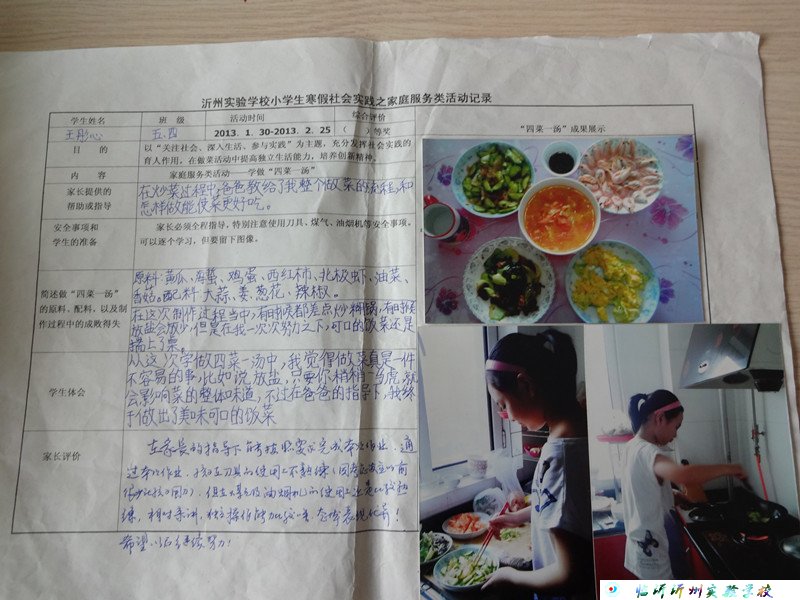 沂州实验学校小学生寒假社会实践之家庭服务类活动记录
学生姓名 班 级 活动时间 综合评价
王彤心 五、四 2013. 1. 30-2013. 2. 25 （ ）等奖
“四菜一汤”成果展示
目 的
以“关注社会、深入生活、参与实践”为主题，充分发挥社会实践的
育人作用，在做菜活动中提高独立生活能力，培养创新精神。
内 容 家庭服务类活动——学做“四菜一汤”
家长提供的
帮助或指导
在炒菜过程中，爸爸教给了我整个做菜的流程，和
怎样做能使菜更好吃。
安全事项和
学生的准备
家长必须全程指导，特别注意使用刀具、煤气、油烟机等安全事项。
可以逐个学习，但要留下图像。
简述做“四菜一汤”
的原料、配料，以及制
作过程中的成败得失
原料：黄瓜、海蜇、鸡蛋、西红柿、北极虾、油菜、
香菇。配料：大蒜、姜、葱花、辣椒。
在这次制作过程当中，有时候都差点炒糊锅，有时候
放盐会放少，但是在我一次次努力之下，可口的饭菜还是
端上了桌。
学生体会
从这次学做四菜一汤中，我觉得做菜真是一件
不容易的事，比如说放盐，只要你稍稍一马虎，就
会影响菜的整体味道，不过在爸爸的指导下，我终
于做出了美味可口的饭菜
家长评价
在家长的指导下能够按照要求完成本次作业，通
过本次作业，孩子在刀具的使用上不熟练
希望以后继续努力！
临沂沂州实验学校